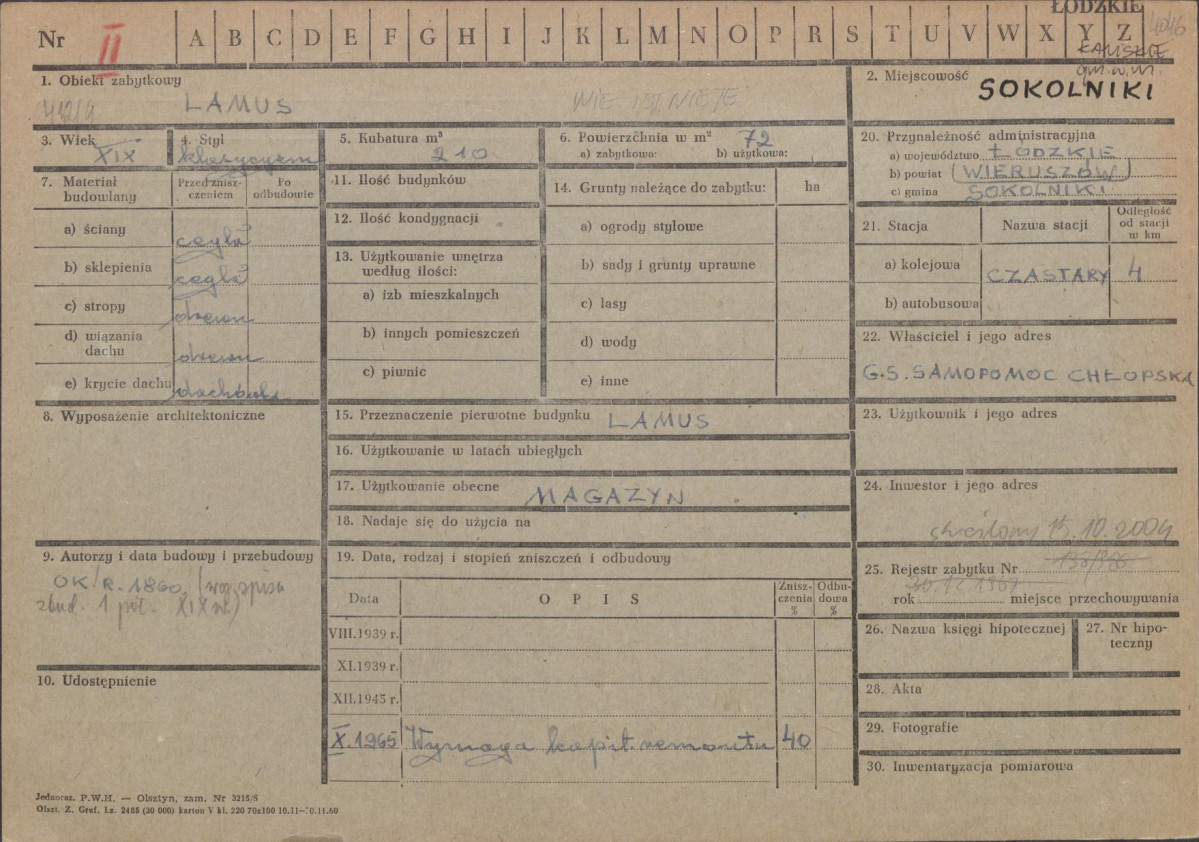 ŁÓDZKIE
Nr II A B C D E F G H I J K L M N O P R S T U V W X Y Z
KALISKIE
gm. w. m.
1. Obiekt zabytkowy
LAMUS
NIE ISTNIEJE
2. Miejscowość
SOKOLNIKI
3. Wiek
XIX
4. Styl
klasycyzm
5. Kubatura m³
210
6. Powierzchnia w m²
72
a) zabytkowa: b) użytkowa:
7. Materiał budowlany
Przed znisz-
czeniem
Po
odbudowie
a) ściany
cegła
b) sklepienia
cegła
c) stropy
drewn
d) wiązania
dachu
drewn
e) krycie dachu
dachówka
8. Wyposażenie architektoniczne
9. Autorzy i data budowy i przebudowy
OK. R. 1860. (wg spisu
zbud. 1 poł. XIX w.)
10. Udostępnienie
11. Ilość budynków
12. Ilość kondygnacji
13. Użytkowanie wnętrza
według ilości:
a) izb mieszkalnych
b) innych pomieszczeń
c) piwnic
14. Grunty należące do zabytku: ha
a) ogrody stylowe
b) sady i grunty uprawne
c) lasy
d) wody
e) inne
15. Przeznaczenie pierwotne budynku LAMUS
16. Użytkowanie w latach ubiegłych
17. Użytkowanie obecne MAGAZYN
18. Nadaje się do użycia na
19. Data, rodzaj i stopień zniszczeń i odbudowy
Data
O P I S
Znisz-
czenia
%
Odbu-
dowa
%
VIII.1939 r.
XI.1939 r.
XII.1945 r.
X.1965 Wymaga kapit. remontu 40
20. Przynależność administracyjna
a) województwo ŁÓDZKIE
b) powiat (WIERUSZÓW)
c) gmina SOKOLNIKI
21. Stacja
Nazwa stacji
Odległość
od stacji
w km
a) kolejowa CZASTARY 4
b) autobusowa
22. Właściciel i jego adres
G.S. SAMOPOMOC CHŁOPSKA
23. Użytkownik i jego adres
24. Inwestor i jego adres
skreślony 15.10.2004
25. Rejestr zabytku Nr
30.12.1967
rok miejsce przechowywania
26. Nazwa księgi hipotecznej
27. Nr hipo-
teczny
28. Akta
29. Fotografie
30. Inwentaryzacja pomiarowa
Jednoraz. P.W.H. — Olsztyn, zam. Nr 3215/S
Olszt. Z. Graf. Lz. 2485 (30 000) karton V kl. 220 70x100 10.11—30.11.60